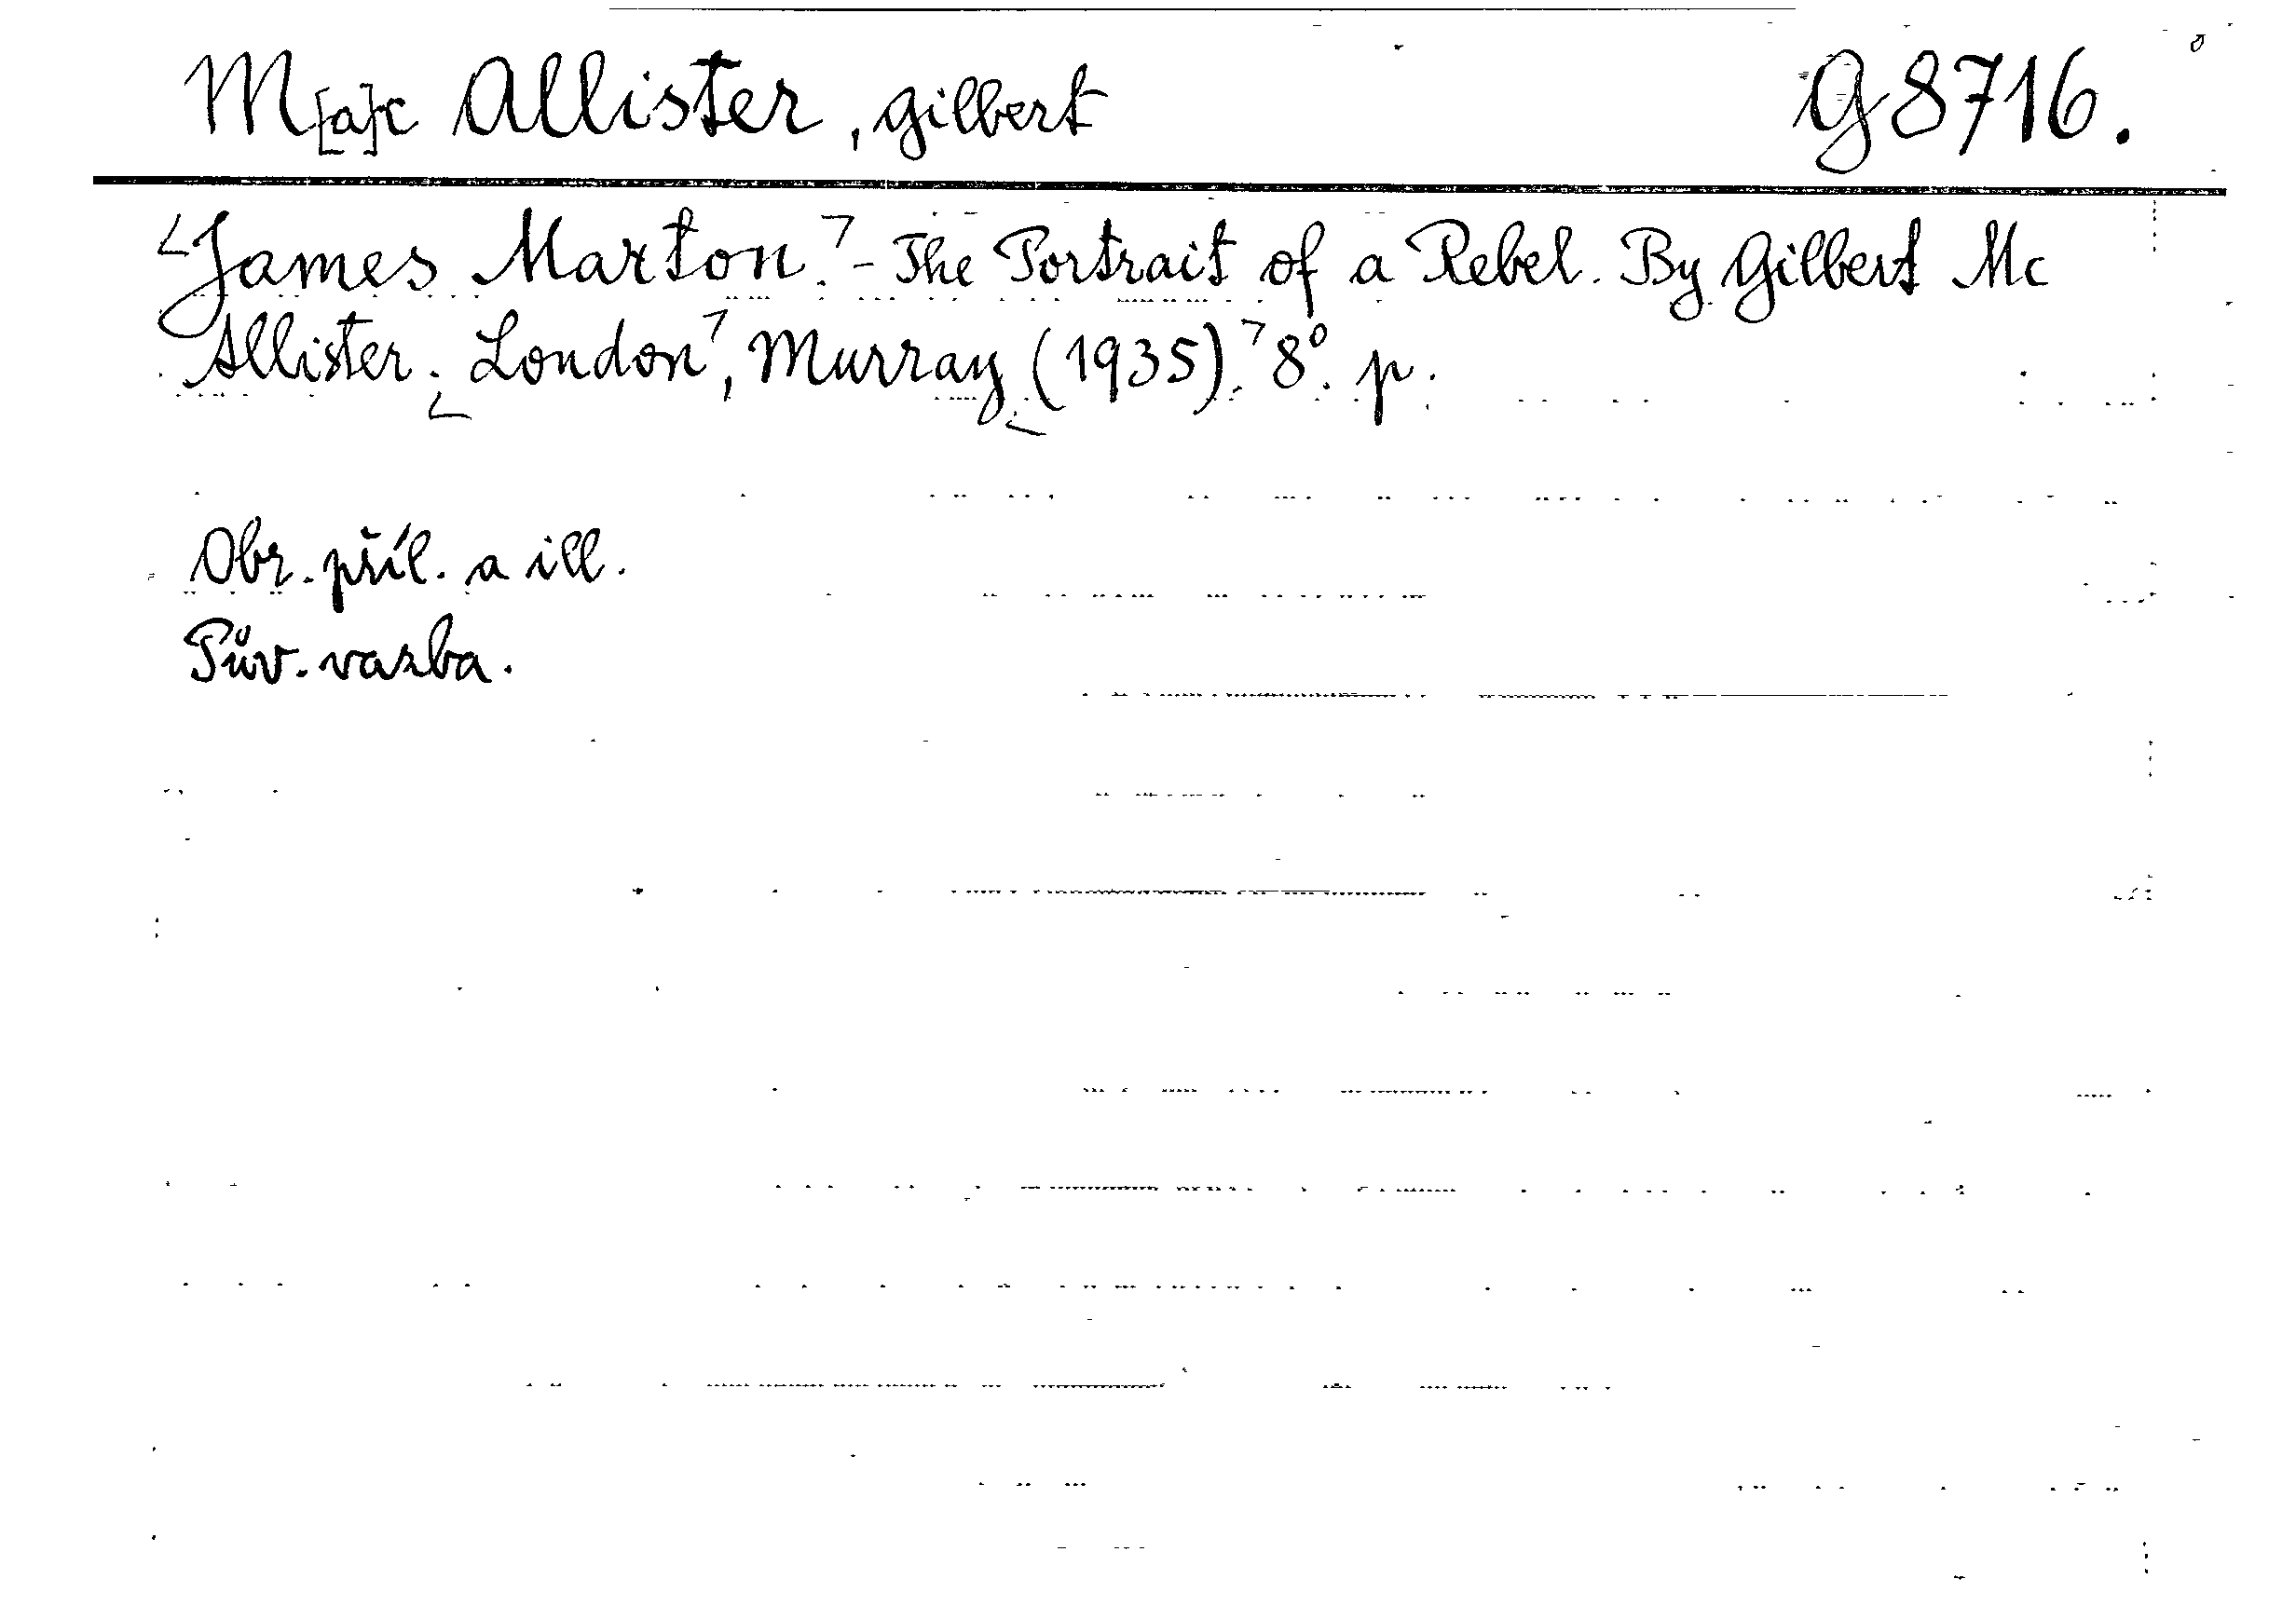 M[a]c Allister, Gilbert G 8716.
James Marton. - The Portrait of a Rebel. By Gilbert Mc
Allister. London, Murray (1935). 8°. p.
Obr. příl. a ill.
Pův. vazba.